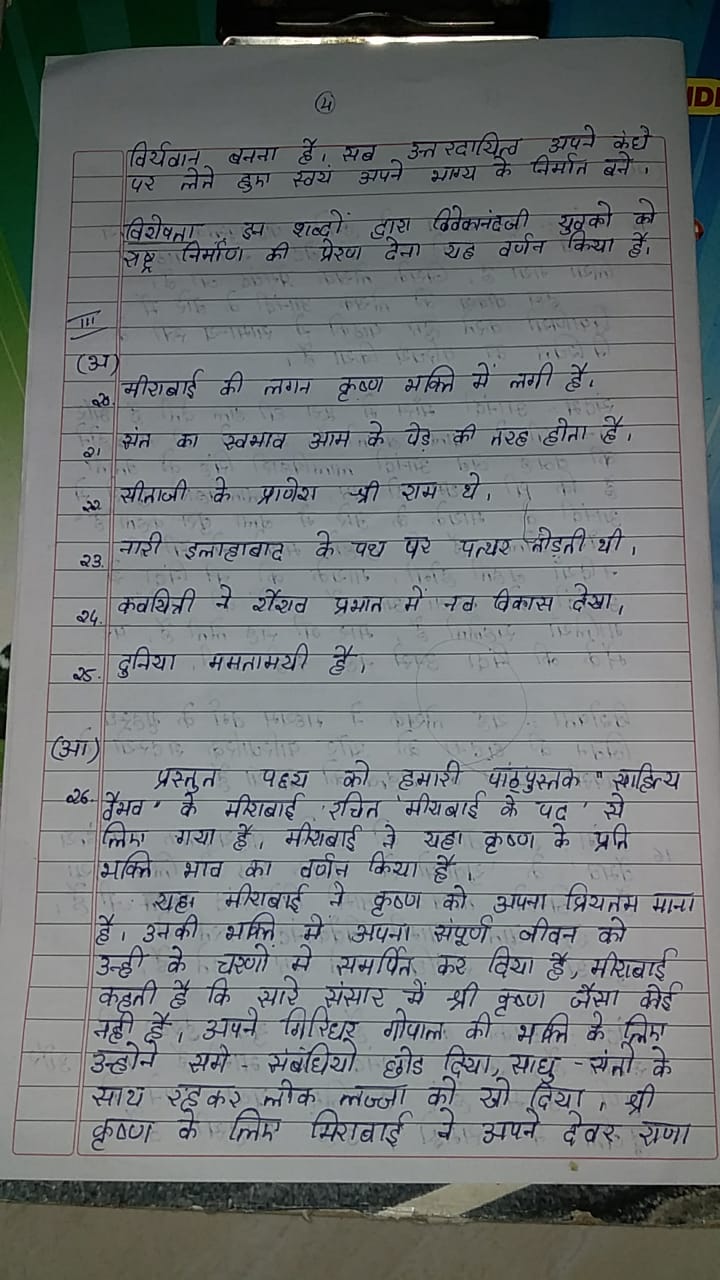 ४
विर्यवान बनना है। सब उत्तरदायित्व अपने कंधे
पर लेते हुए स्वयं अपने भाग्य के निर्माता बने।
विशेषता :- इन शब्दों द्वारा विवेकानंदजी युवको को
राष्ट्र निर्माण की प्रेरण देना यह वर्णन किया है।
III
(अ)
२०. मीराबाई की लगन कृष्ण भक्ति में लगी है।
२१ संत का स्वभाव आम के पेड़ की तरह होता है।
२२ सीताजी के प्राणेश श्री राम थे।
२३. नारी इलाहाबाद के पथ पर पत्थर तोड़ती थी।
२४. कवयित्री ने शैशव प्रभात में नव विकास देखा।
२५. दुनिया ममतामयी है।
(आ)
२६. प्रस्तुत पद्य को हमारी पाठ्पुस्तक "साहित्य
वैभव" के मीराबाई रचित 'मीराबाई के पद' से
लिए गया है। मीराबाई ने यहा कृष्ण के प्रति
भक्ति भाव का वर्णन किया है।
यहा मीराबाई ने कृष्ण को अपना प्रियतम माना
है। उनकी भक्ति में अपना संपूर्ण जीवन को
उन्ही के चरणों मे समर्पित कर दिया है, मीराबाई
कहती है कि सारे संसार में श्री कृष्ण जैसा कोई
नही है, अपने गिरिधर गोपाल की भक्ति के लिए
उन्होने समे - संबंधियो छोड दिया, साधु - संतो के
साथ रहकर लोक लज्जा को खो दिया। श्री
कृष्ण के लिए मिराबाई ने अपने देवर राणा